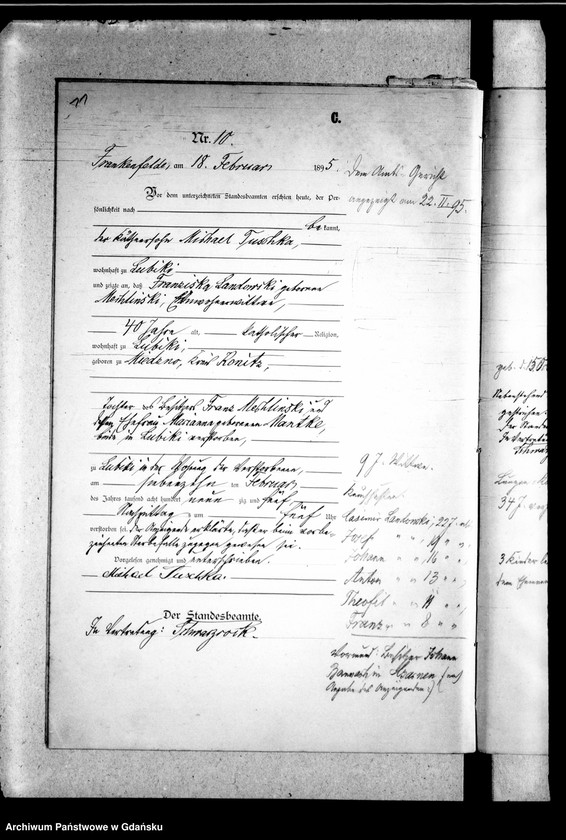 11
C.
Nr. 10.
Frankenfelde, am 18. Februar 1895.
Vor dem unterzeichneten Standesbeamten erschien heute, der Per-
sönlichkeit nach
bekannt,
der Käthnersohn Michael Tuschka,
wohnhaft zu Lubiki
und zeigte an, daß Franziska Landowski geborene
Mechlinski, Einwohnerwittwe,
40 Jahre alt, katholischer Religion,
wohnhaft zu Lubiki,
geboren zu Miedzno, Kreis Konitz,
Tochter des Besitzers Franz Mechlinski und
dessen Ehefrau Marianna geborenen Wantke,
beide in Lubiki verstorben,
zu Lubiki in der Wohnung der Verstorbenen,
am siebenzehn ten Februar
des Jahres tausend acht hundert neunzig und fünf
Nachmittag um fünf Uhr
verstorben sei. Der Anzeigende erklärte, daß er beim vorbe-
zeichneten Sterbefalle zugegen gewesen sei.
Vorgelesen genehmigt und unterschrieben.
Michael Tuschka.
Der Standesbeamte,
In Vertretung: Schwarzrock.
Dem Amts-Gericht
angezeigt am 22. II. 95.
97. Wittwe.
Casimir Landowski, 22 J. alt
Josef " " 19 " "
Johann " " 16 " "
Anton " " 13 " "
Theofil " " 11 " "
Franz " " 8 " "
Vormund: Besitzer Johann
in (nach
Angabe des Anzeigenden.)
geb. d. 15.
Nebenstehend
gestrichen.
Der Standes
In Vertretung
Schwarz
347
3 Kinder
Archiwum Państwowe w Gdańsku